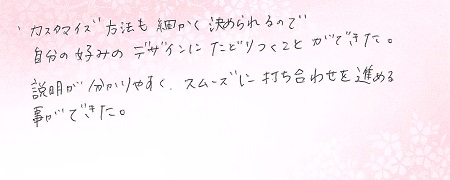 、カスタマイズ方法も細かく決められるので
自分の好みのデザインにたどりつくことができた。
説明が分かりやすく、スムーズに打ち合わせを進める
事ができた。